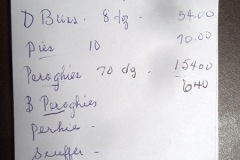 D Buns. 8 dg. 54.00
Pies 10 70.00
Peroghies 70 dg. 15400
640
B Peroghies
Perhie -